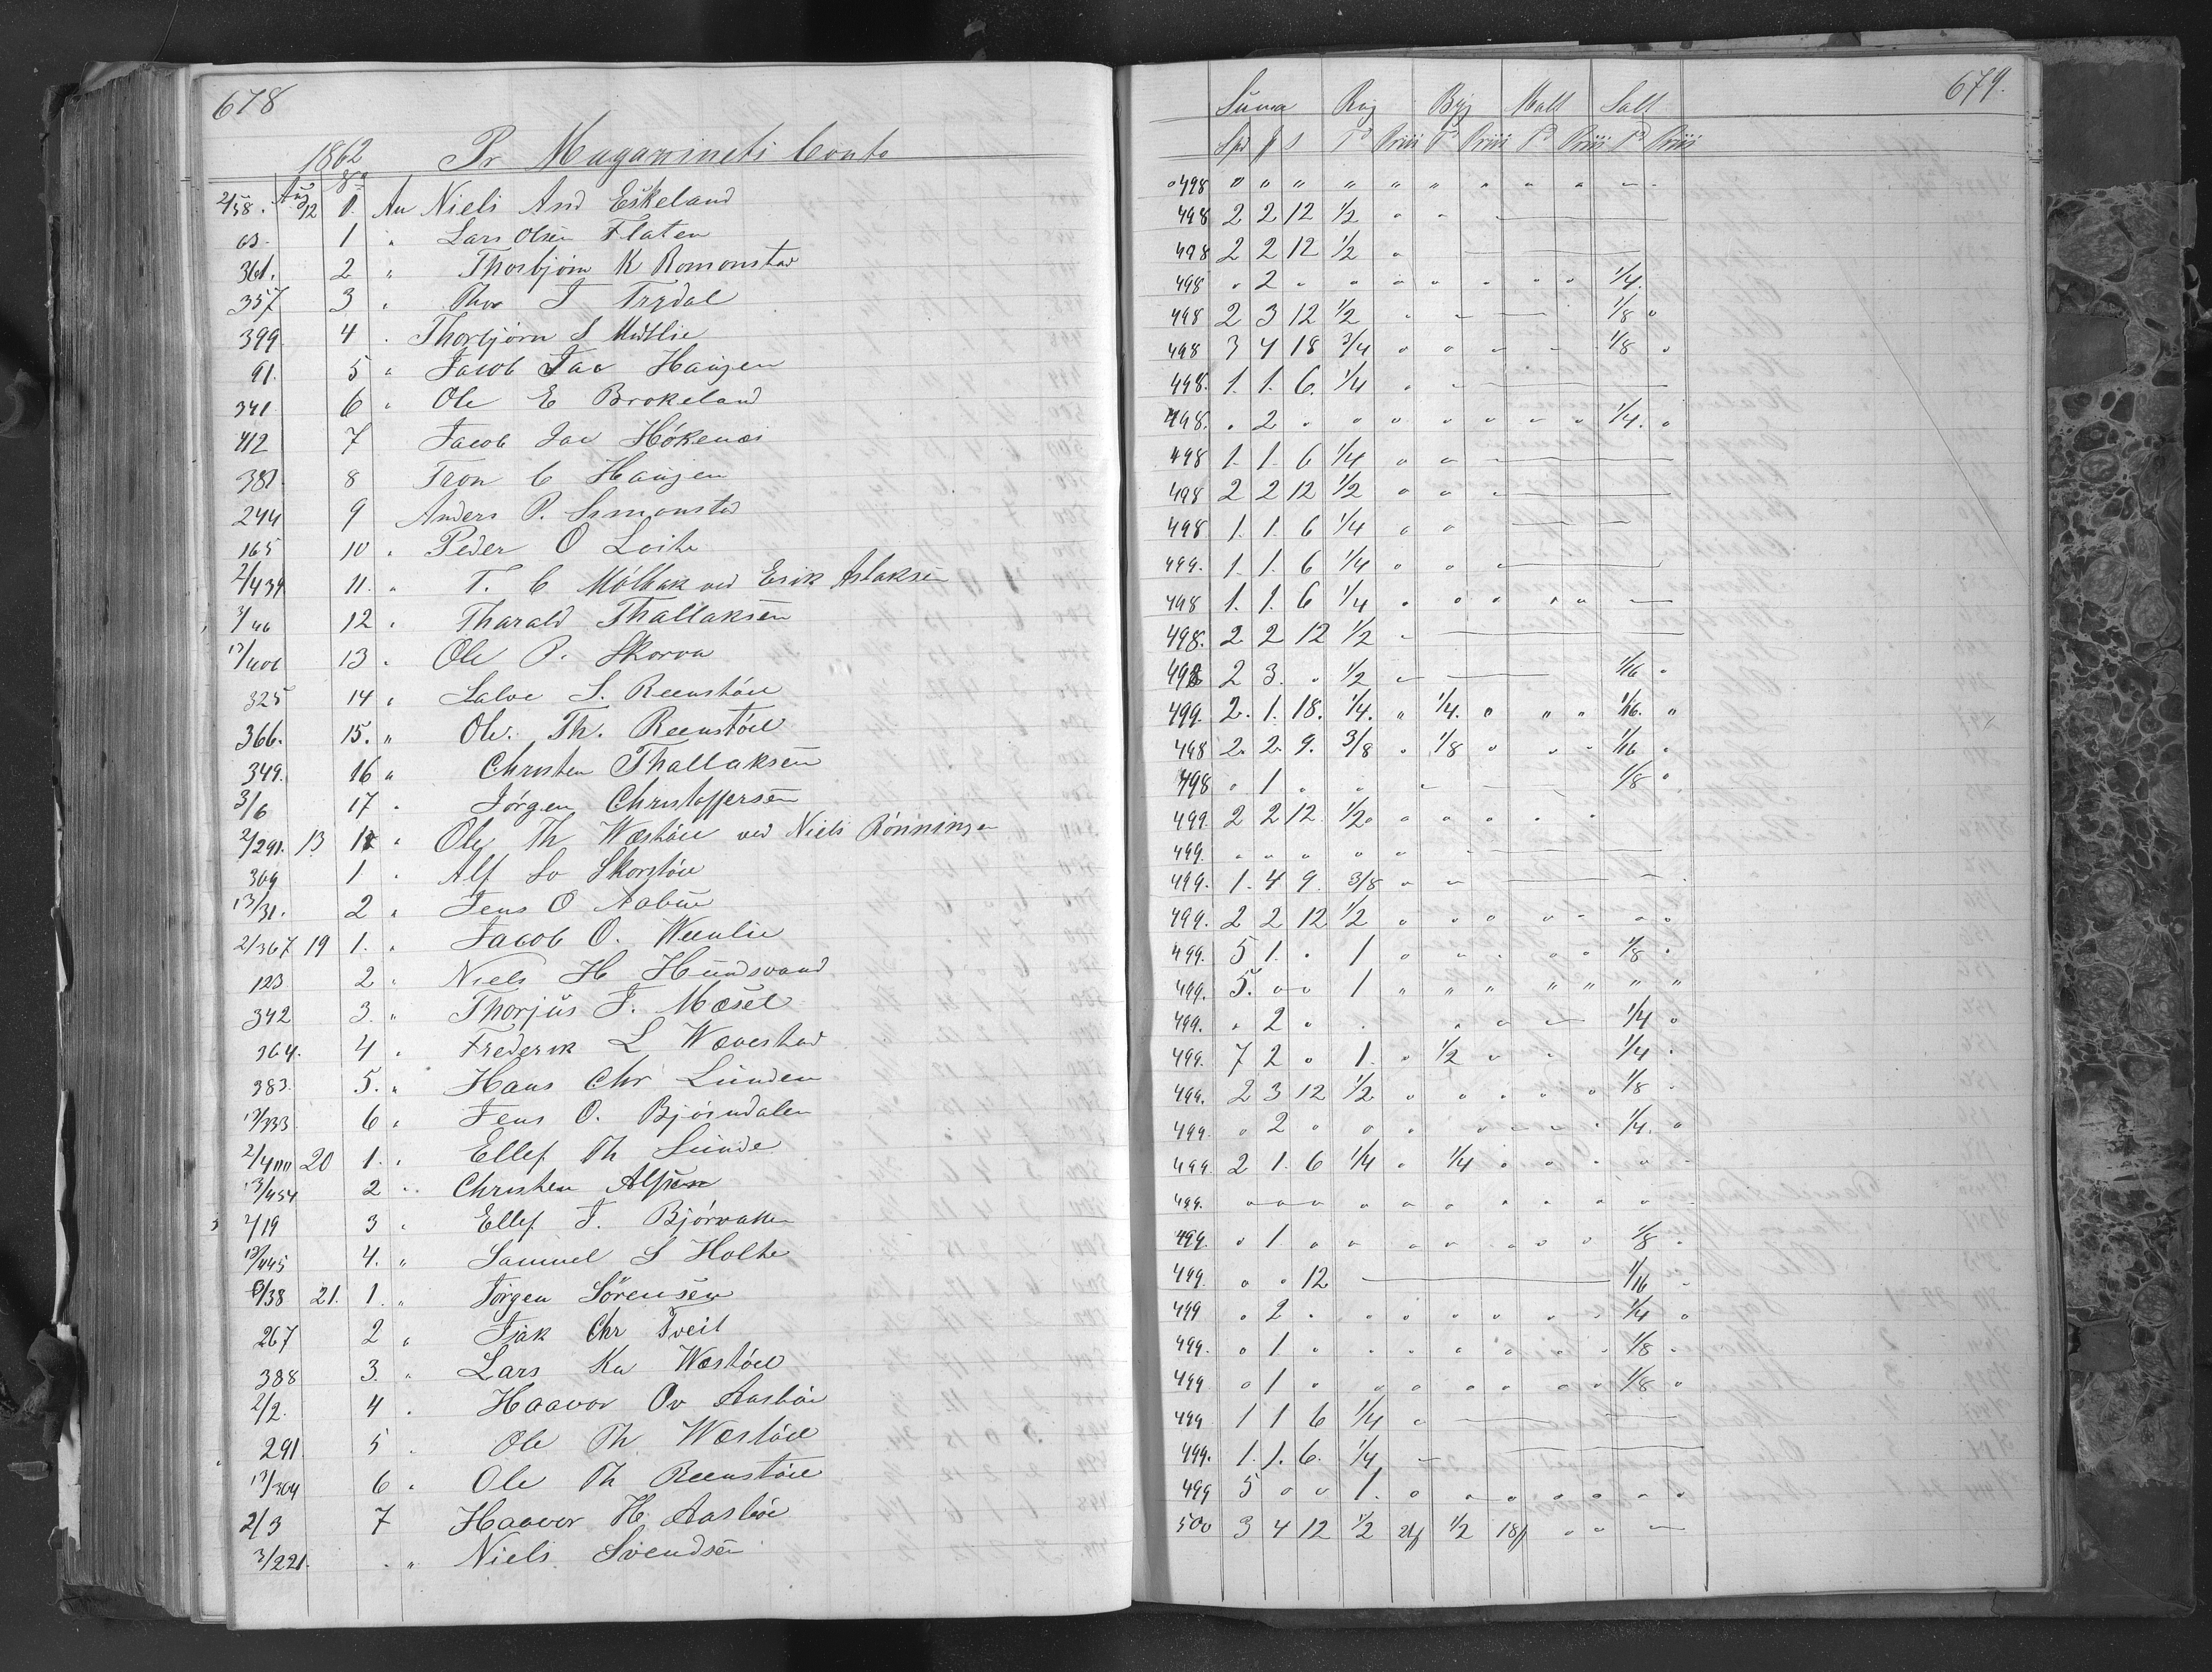 678
1862 Pr Magazinets Conto
2/58. Aug 12 1. An Niels And Eskeland
63. 1 " Lars Olsen Flaten
361. 2 " Thorbjørn K Romonstad
357 3 " Thor T Trydal
399 4 " Thorbjørn S Midtlie
91. 5 " Jacob Jac Haugen
341 6 " Ole E Brokeland
412 7 Jacob Jac Høkenæs
381 8 Tron C Haugen
244 9 Anders P. Simonstad
165 10 " Peder O Loite
2/439 11. " T. C Mólbak ved Erik Aslaksen
3/46 12 " Tharald Thallaksen
13/406 13 " Ole P. Skorva
325 14 " Salve S. Reenstöil
366. 15. " Ole Th. Reenstöil
349. 16 " Christen Thallaksen
3/6 17 " Jørgen Christoffersen
2/291. 13 1 " Ole Th Wæstöil ved Niels Rönningen
309 1 " Alf So Skorstöil
13/31. 2 " Jens O Aabue
2/367 19 1. " Jacob O. Weenlie
123 2 " Niels H Hundsvand
342 3. " Thorjus T. Mæsel
364. 4 " Frederik L Wævestad
383. 5. " Hans Chr Lunden
13/333 6 " Jens O. Bjórndalen
2/400 20 1. " Ellef Th Sunde
13/454 2 " Christen Alfsen
2/19 3 " Ellef T. Bjórvaken
13/445 4. " Samuel S Holte
6/38 21. 1. " Jörgen Sörensen
267 2 " Isak Chr Tveit
388 3. " Lars Kn Wæstöil
2/2. 4 " Haavor Ov Aasböe
291. 5 " Ole Th Wæstöil
13/304 6 " Ole Th Reenstöil
2/3 7 Haavor H. Aasböe
3/221. " Niels Svendsen
679.
Suma Rug Byg Malt Salt
Spd β Td Priis Td Priis Td Priis Td Priis
498 " " " " " " " " "
498 2 2 12 1/2 " "
498 2 2 12 1/2 "
498 " 2 " " " " " " " 1/4.
498 2 3 12 1/2 " " 1/8 "
498 3 4 18 3/4 " " " " 1/8 "
498. 1. 1. 6. 1/4 " "
498. " 2 " " " " " " " 1/4. "
498 1. 1. 6 1/4 " "
498 2 2 12 1/2 " "
498 1. 1. 6 1/4 " "
499. 1. 1. 6 1/4 " "
498 1. 1. 6 1/4 " " " " "
498. 2 2 12 1/2 "
498 2 3. " 1/2 " 1/16 "
499. 2. 1. 18. 1/4. " 1/4. " " " 1/16. "
498 2. 2. 9. 3/8 " 1/8 " " " 1/16 "
498 " 1 " " " 1/8 "
499. 2 2 12. 1/2 " " " " "
499. " " " " "
499. 1. 4 9. 3/8 " "
499. 2 2 12 1/2 " " " " " " "
499. 5 1. " 1 " " " " " 1/8 "
499. 5. " " 1 " " " " " " "
499. " 2 " " " " 1/4 "
499. 7 2 " 1. " 1/2 " " 1/4 "
499. 2 3 12 1/2 " " " " " 1/8 "
499. " 2 " " " " " " " 1/4. "
499 2 1. 6 1/4 " 1/4 " " " " "
499. " " " " " " " " " "
499. " 1 " " " " " " " 1/8 "
499. " " 12 1/16 "
499 " 2 " " " " " " " 1/4 "
499. " 1 " " " " " " " 1/8 "
499 " 1 " " " " " " " 1/8 "
499 1 1 6 1/4 "
499. 1. 1. 6. 1/4 "
499 5 " " 1. " " " " " " "
500 3 4 12 1/2 1/2 " "